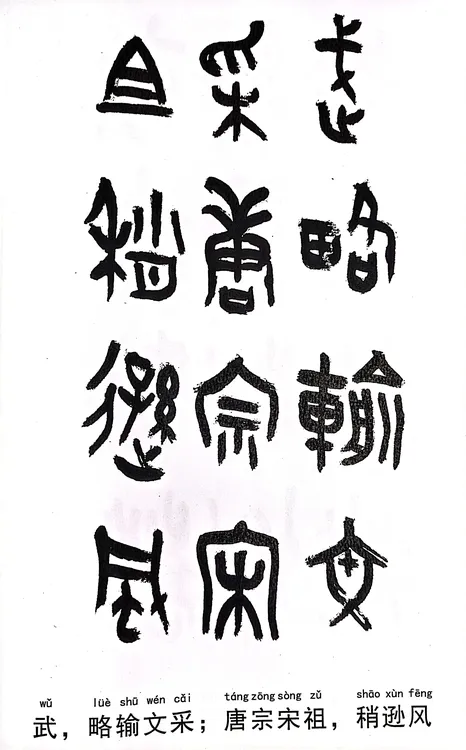 武略輸文
采唐宗宋
且稍遜風
wǔ lüè shū wén cǎi táng zōng sòng zǔ shāo xùn fēng
武，略输文采；唐宗宋祖，稍逊风